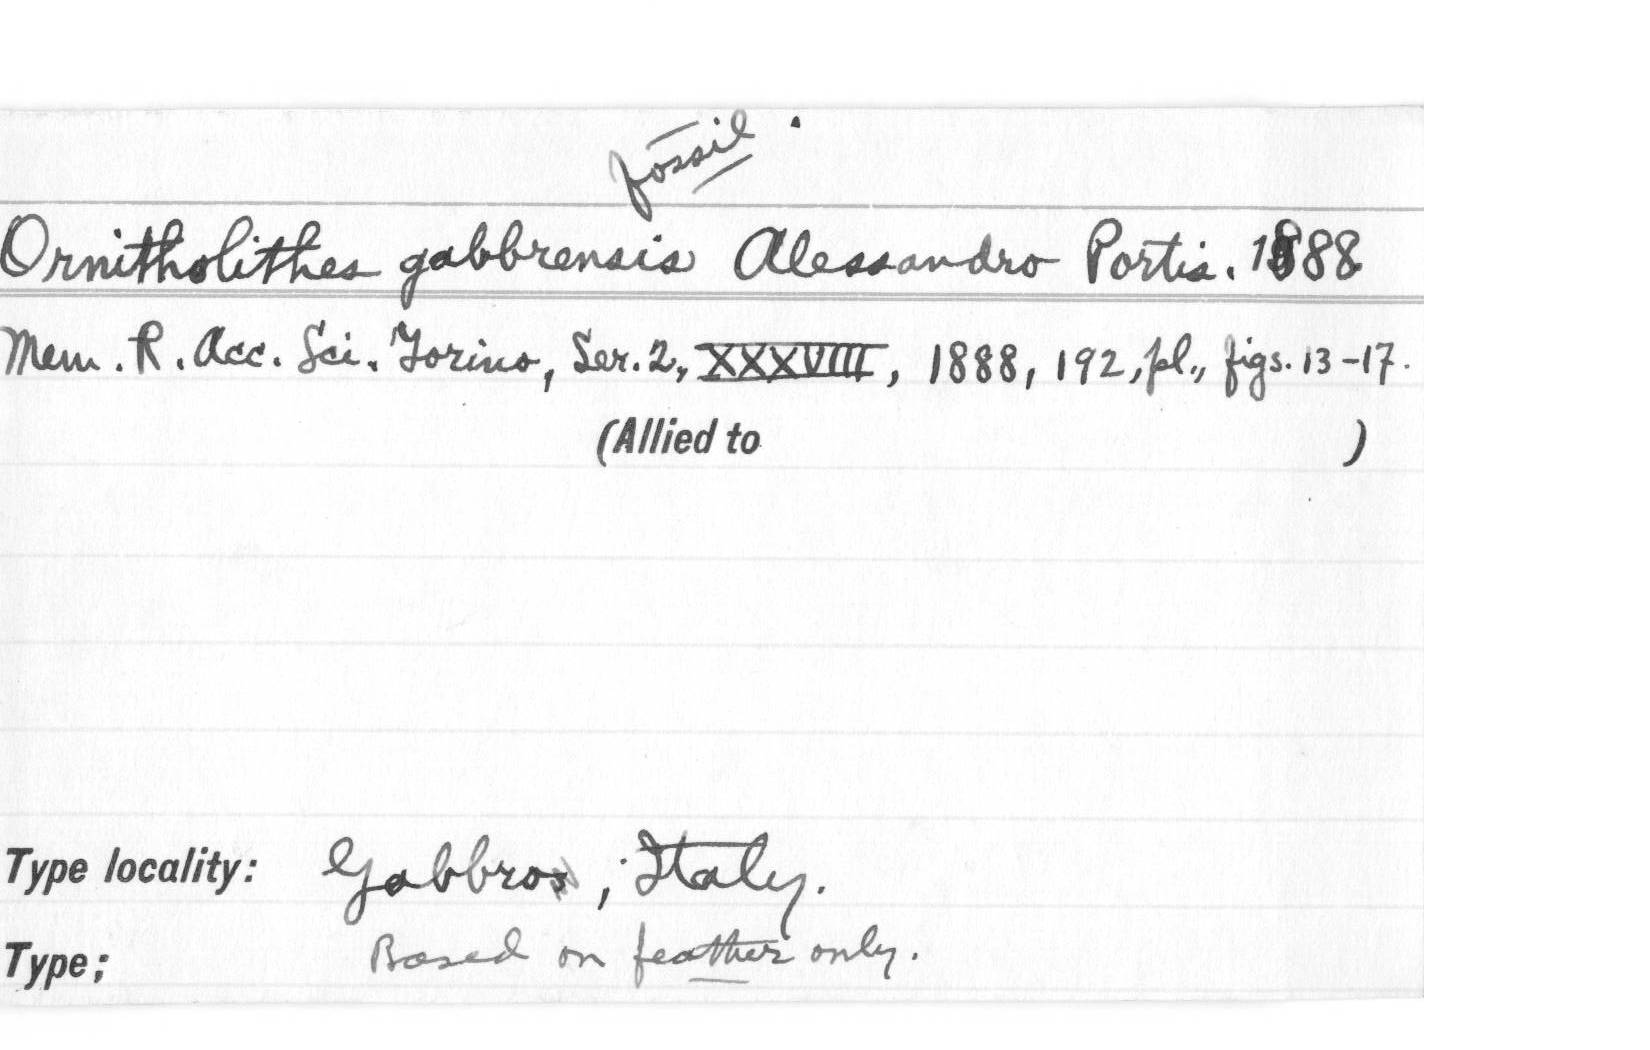 fossil.
Ornitholithes gabbrensis Alessandro Portis. 1888
Mem. R. Acc. Sci. Torino, Ser. 2, XXXVIII, 1888, 192, pl., figs. 13-17.
(Allied to )
Type locality: Gabbro, Italy.
Type; Based on feather only.